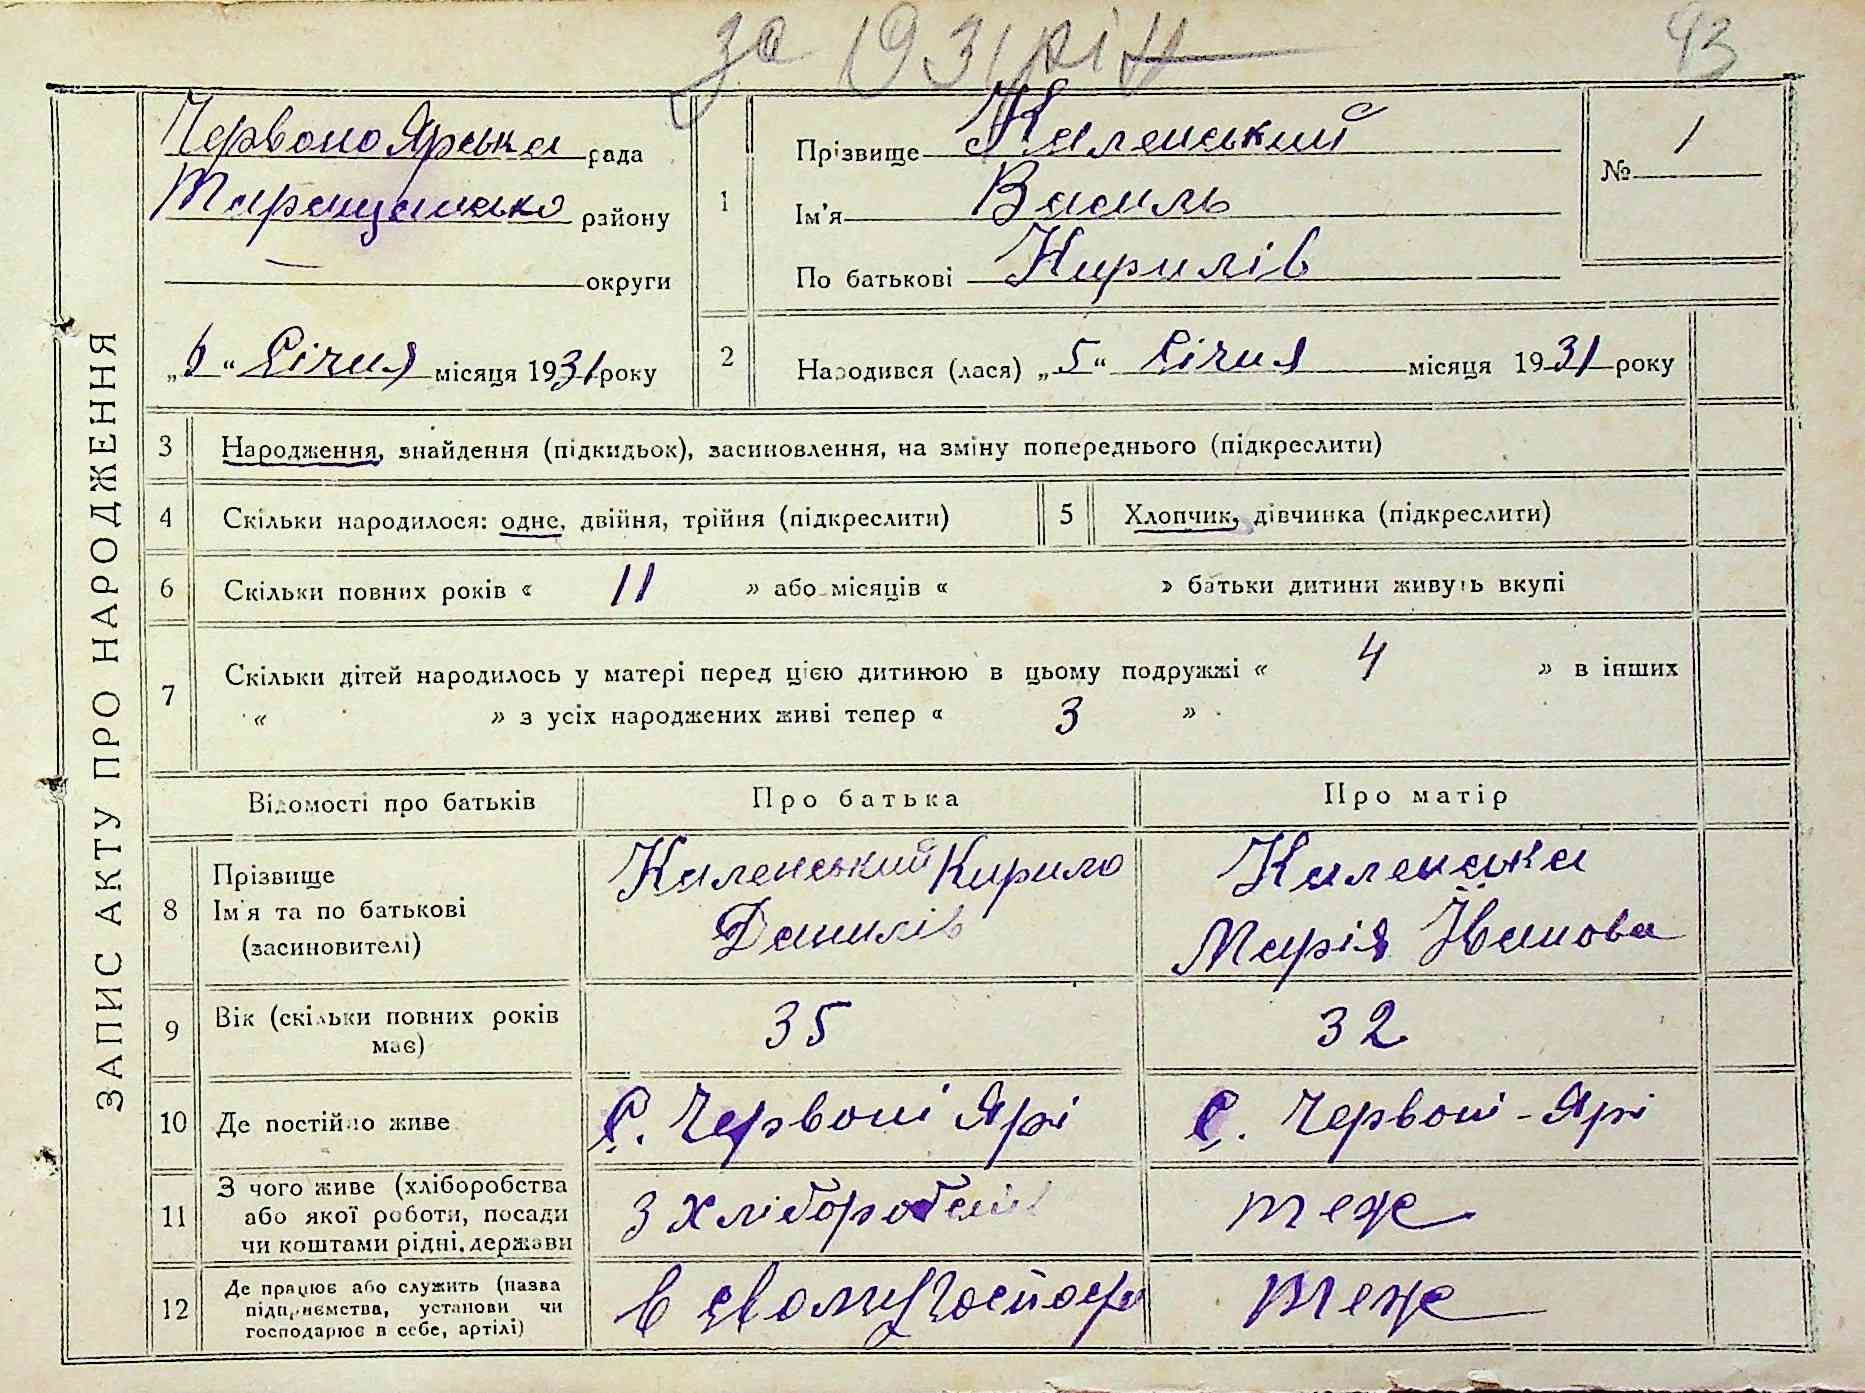 за 1931 рік
93
ЗАПИС АКТУ ПРО НАРОДЖЕННЯ
Червоно Ярська рада
Таращансько району
— округи
„6“ Січня місяця 1931 року
1
Прізвище Каленський
Ім'я Василь
По батькові Кирилів
№ 1
2
Народився (лася) „5“ Січня місяця 1931 року
3 Народження, знайдення (підкидьок), засиновлення, на зміну попереднього (підкреслити)
4 Скільки народилося: одне, двійня, трійня (підкреслити)
5 Хлопчик, дівчинка (підкреслити)
6 Скільки повних років « 11 » або місяців « » батьки дитини живуть вкупі
7 Скільки дітей народилось у матері перед цією дитиною в цьому подружжі « 4 » в інших
« » з усіх народжених живі тепер « 3 »
Відомості про батьків
Про батька
Про матір
8 Прізвище
Ім'я та по батькові
(засиновителі)
Каленський Кирило
Данилів
Каленська
Марія Йванова
9 Вік (скільки повних років
має)
35
32
10 Де постійно живе
С. Червоні Ярі
С. Червоні - Ярі
11 З чого живе (хліборобства
або якої роботи, посади
чи коштами рідні, держави
З хліборобства
теж
12 Де працює або служить (назва
підприємства, установи чи
господарює в себе, артілі)
в свому господ
теж